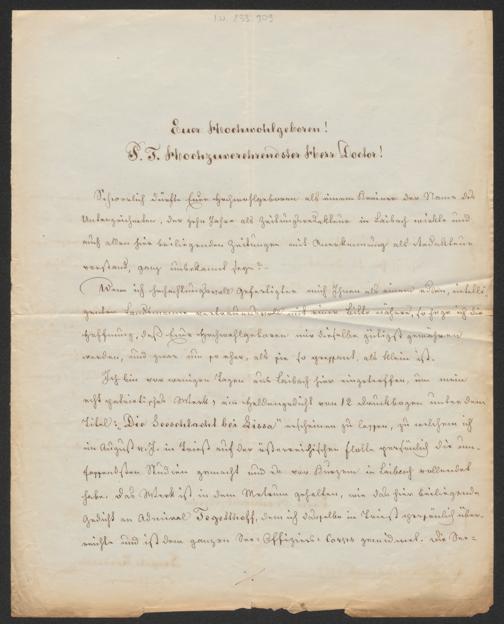 I.N. 233.909
Euer Hochwohlgeboren!
P. T. Hochzuverehrendster Herr Doctor!
Schwerlich dürfte Euer Hochwohlgeboren als einem Krainer der Name des
Unterzeichneten, der zehn Jahre als Zeitungsredakteur in Laibach wirkte und
auch allen hier beiliegenden Zeitungen mit Anerkennung als Redakteur
vorstand, ganz unbekannt sein?
Wenn ich hochachtungsvoll Gefertigter mich Ihnen als einem edlen, intelli
genten Landsmanne vertrauensvoll mit einer Bitte nähere, so hege ich die
Hoffnung, daß Euer Hochwohlgeboren mir dieselbe gütigst gewähren
werden, und zwar um so eher, als sie so gespannt, als klein ist.
Ich bin vor wenigen Tagen aus Laibach hier eingetroffen, um mein
echt patriotisches Werk, ein Heldengedicht von 12 Druckbogen unter dem
Titel: „Die Seeschlacht bei Lissa" erscheinen zu lassen, zu welchem ich
im August v. J. in Triest auf der österreichischen Flotte persönlich die um-
fassendsten Studien gemacht und es vor Kurzem in Laibach vollendet
habe. Das Werk ist in dem Metrum gehalten, wie das hier beiliegende
Gedicht an Admiral Tegetthoff, dem ich dasselbe in Triest persönlich über-
reichte und ist dem ganzen See-Offiziers-Corps gewidmet. Die See-
./.